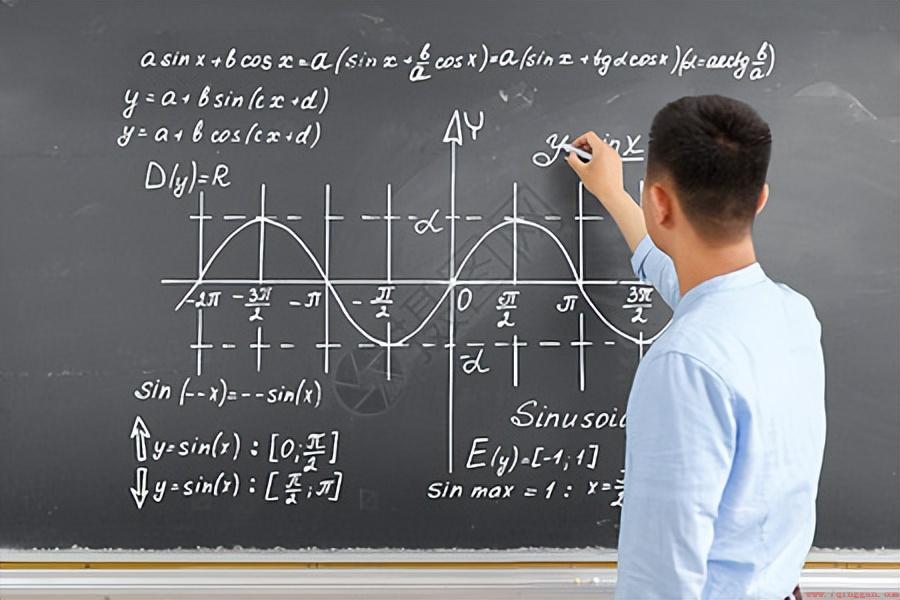 a sin x + b cos x = a (sin x + b/a cos x) = a (sin x + tg α cos x) (α = arctg b/a)
y = a + b sin (cx + d)
y = a + b cos (cx + d)
Y
y = sin x
D(y) = R
α
-2π -3π/2 -π -π/2 0 π/2 π 3π/2
-α
sin (--x) = --sin(x)
Sinusoid
y = sin(x) : [0; π/2]
E(y) = [-1; 1]
y = sin(x) : [π/2; π]
sin max = 1 : x =